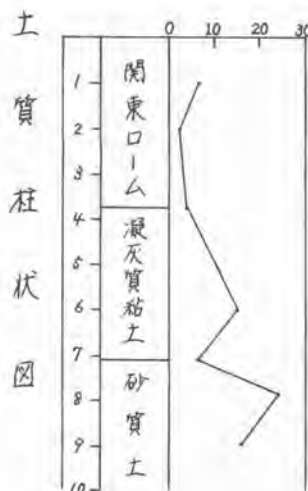 土質柱状図
0 10 20 30
1
2
3
4
5
6
7
8
9
10
関東ローム
凝灰質粘土
砂質土